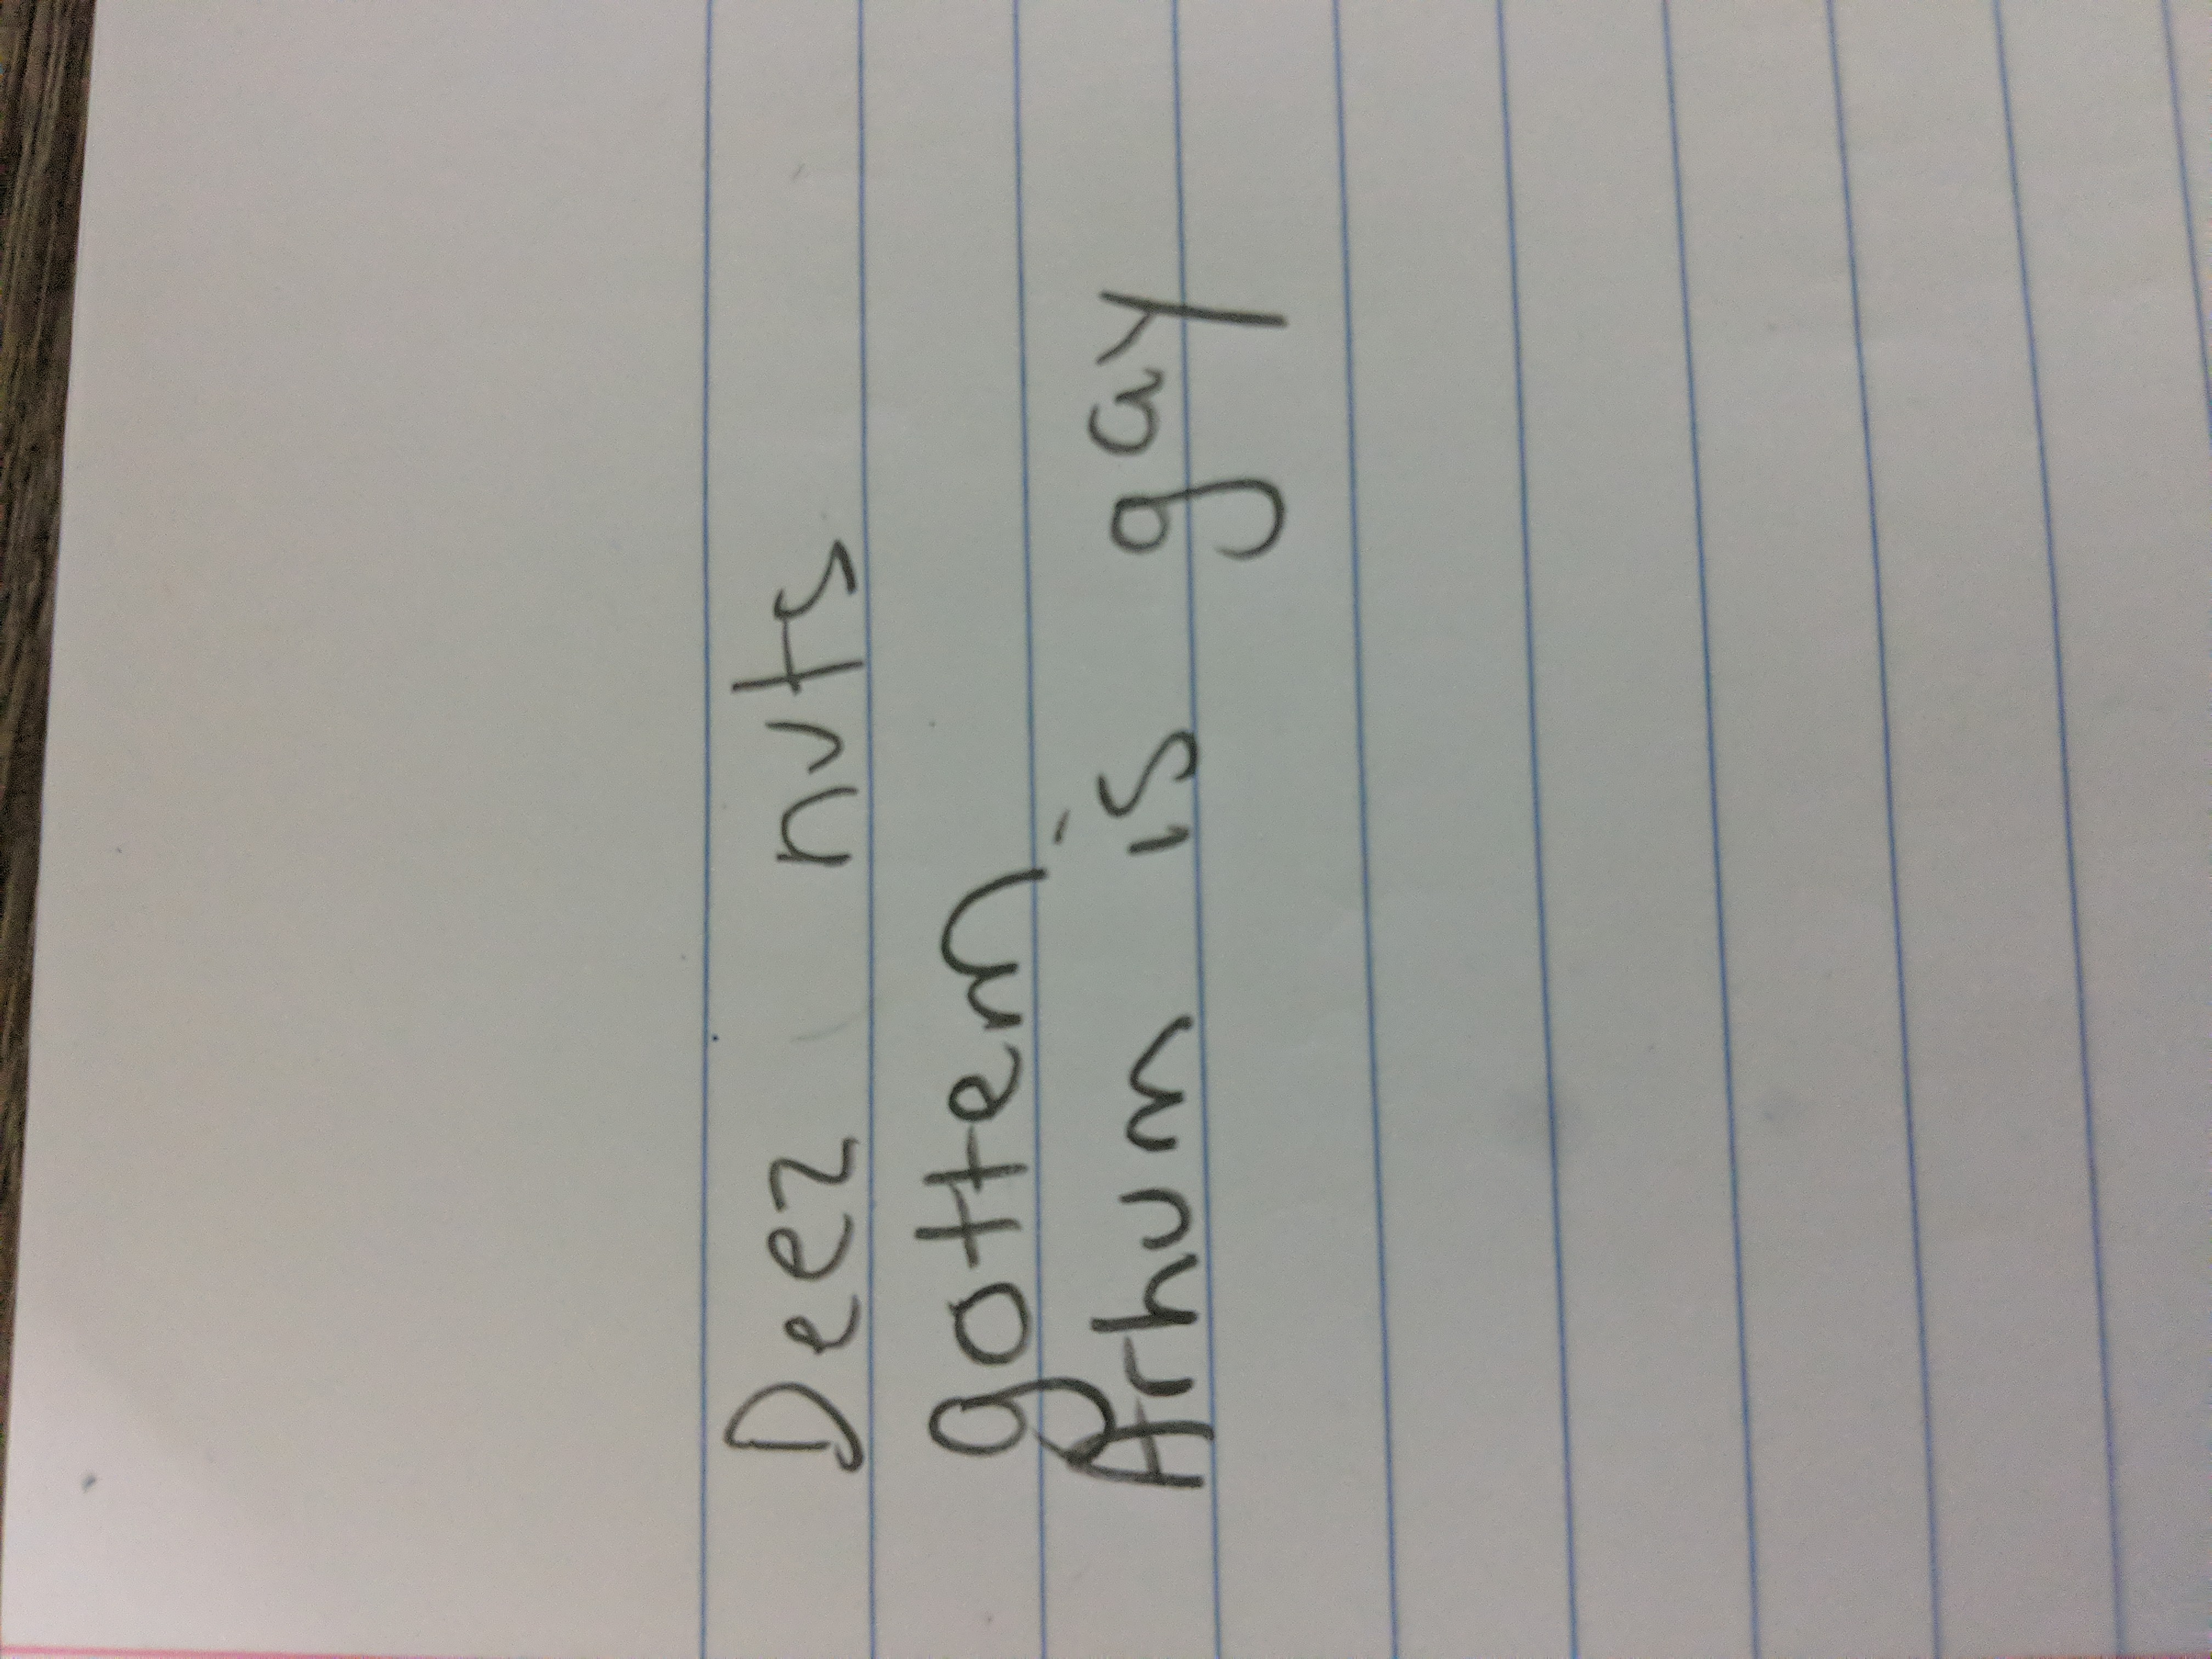 Deez nuts
gottem
Arhum is gay